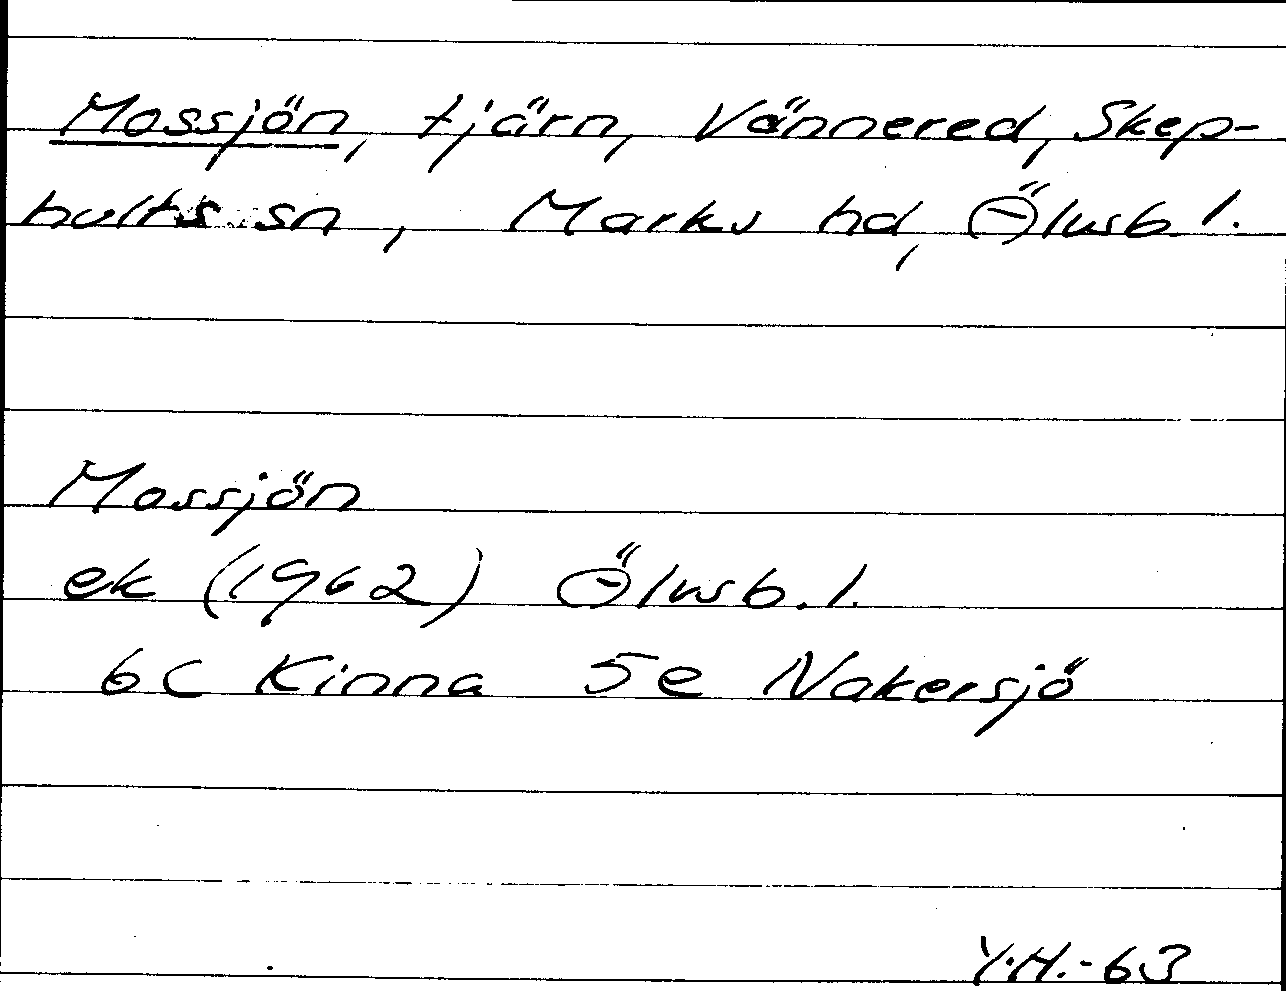 Mossjön, tjärn, Vännered, Skep-
hults sn, Marks hd, Älvsb. l.
Mossjön
ek (1962) Älvsb. l.
6C Kinna 5e Nakersjö
Y.H.-63